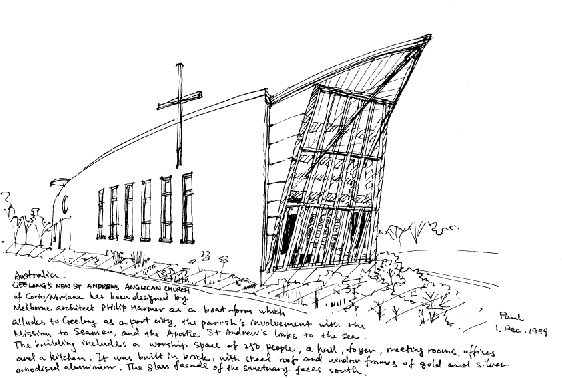 Australia.
GEELONG'S NEW ST ANDREWS ANGLICAN CHURCH
of Corio/Norlane has been designed by
Melbourne architect Philip Harmer as a boat form which
alludes to Geelong as a port city, the parish's involvement with the
Mission to Seamen, and the Apostle St Andrew's links to the sea.
The building includes a worship space of 250 people, a hall, foyer, meeting rooms, offices
and a kitchen. It was built in brick, with steel roof and window frames of gold and silver
anodised aluminium. The glass facade of the sanctuary faces south.
Paul
1. Dec. 1999